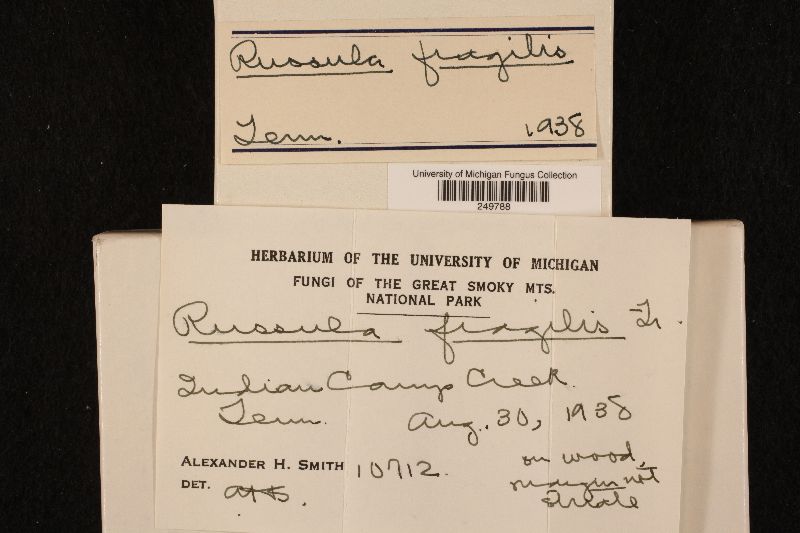 Russula fragilis
Tenn. 1938
University of Michigan Fungus Collection
249788
HERBARIUM OF THE UNIVERSITY OF MICHIGAN
FUNGI OF THE GREAT SMOKY MTS.
NATIONAL PARK
Russula fragilis Fr.
Indian Camp Creek.
Tenn. Aug. 30, 1938
ALEXANDER H. SMITH 10712.
on wood,
margin not
striate
DET. AHS.